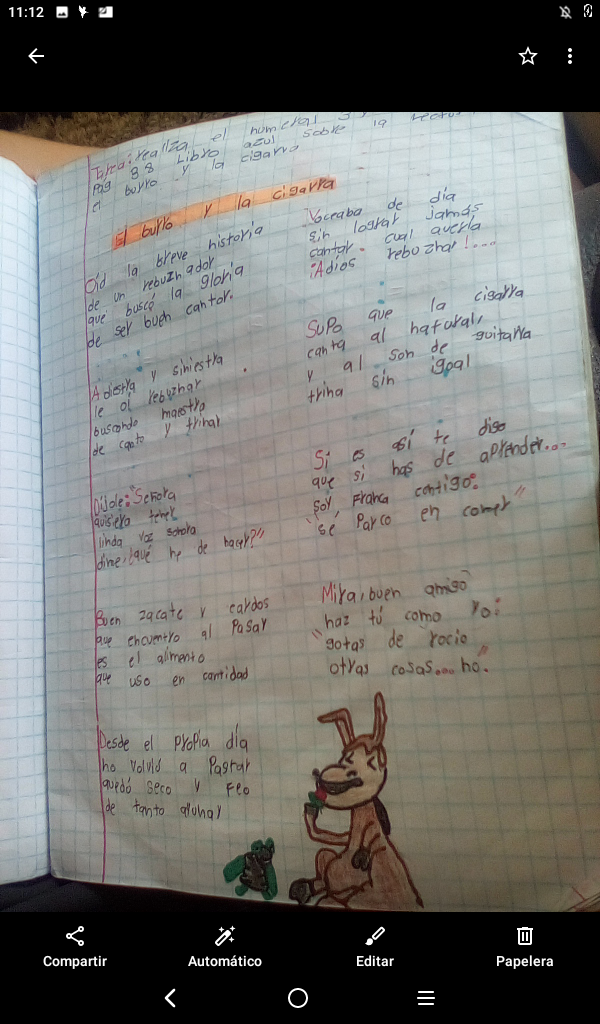 11:12
Tarea: realiza el numeral
Pag 88 Libro azul sobre la
el burro y la cigarra
El burro y la cigarra
Oíd la breve historia
de un rebuznador
que buscó la gloria
de ser buen cantor.
Adiestra y siniestra
le oí rebuznar
buscando maestro
de canto y trinar
Díjole: "Señora
quisiera tener
linda voz sonora
dime, ¿qué he de hacer?"
Buen zacate y cardos
que encuentro al Pasar
es el alimento
que uso en cantidad
Desde el propia día
no volvió a Pastar
quedó seco y Feo
de tanto ayunar
Voceaba de día
sin lograr jamás
cantar. cual quería
¡Adios rebuznar!....
Supo que la cigarra
canta al natural,
y al son de guitarra
trina sin igoal
Si es así te digo
que si has de aprender...
soy Franca contigo:
"sé Parco en comer"
Mira, buen amigo
haz tú como yo:
"gotas de rocío
otras cosas... no."
Compartir
Automático
Editar
Papelera